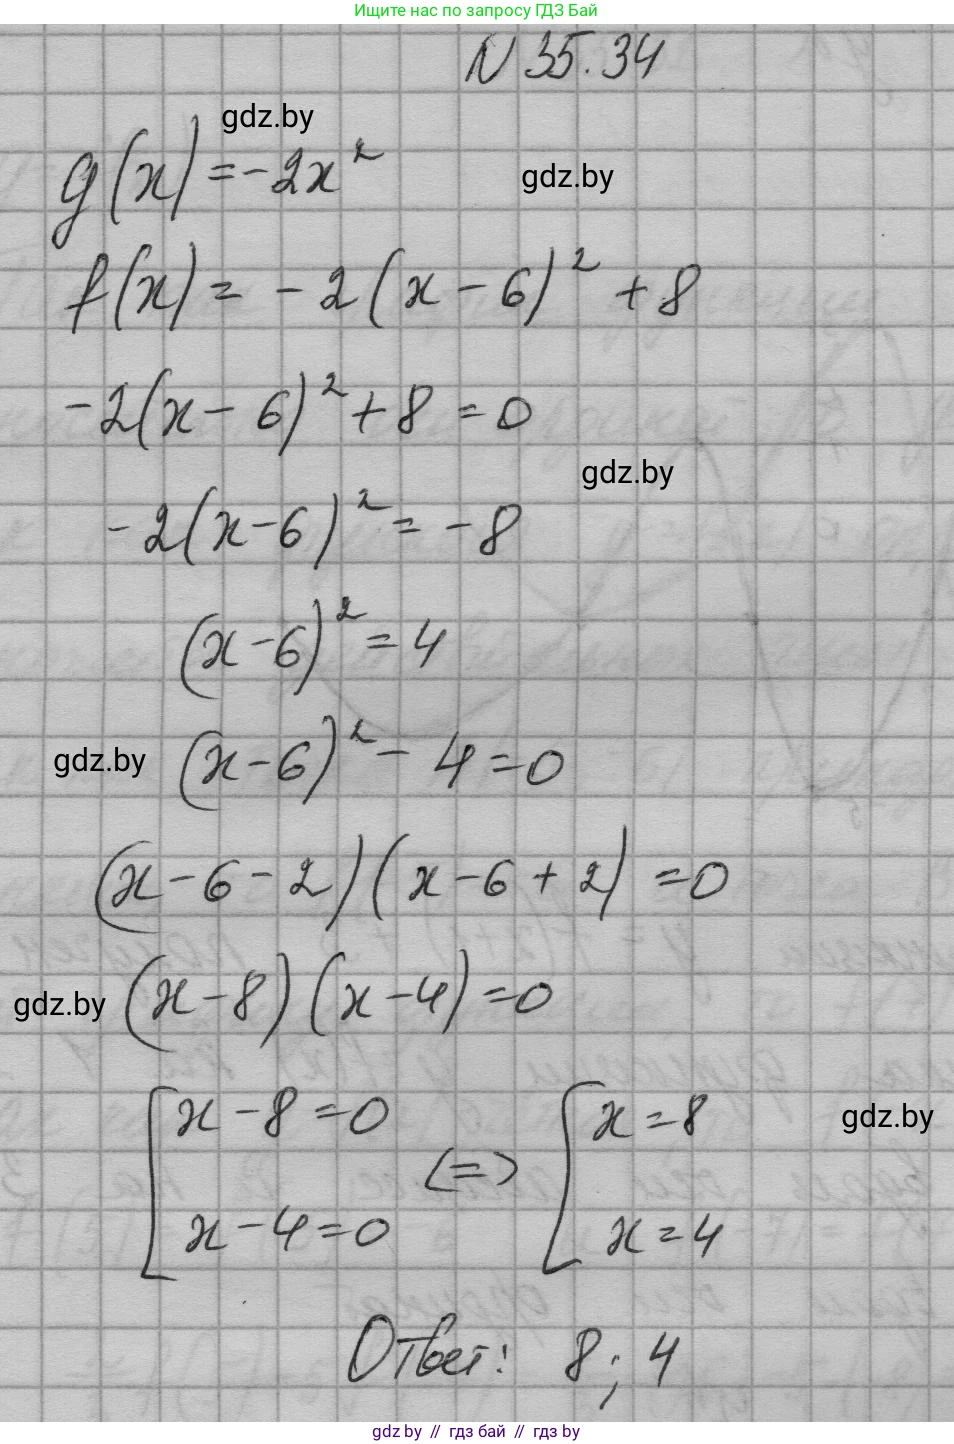 Ищите нас по запросу ГДЗ Бай
N 35.34
gdz.by
g(x) = -2x²
gdz.by
f(x) = -2(x-6)² + 8
-2(x-6)² + 8 = 0
gdz.by
-2(x-6)² = -8
(x-6)² = 4
gdz.by
(x-6)² - 4 = 0
(x-6-2)(x-6+2) = 0
gdz.by
(x-8)(x-4) = 0
[x-8=0 <=> [x=8
gdz.by
x-4=0 x=4
Ответ: 8; 4
gdz.by // гдз бай // гдз by